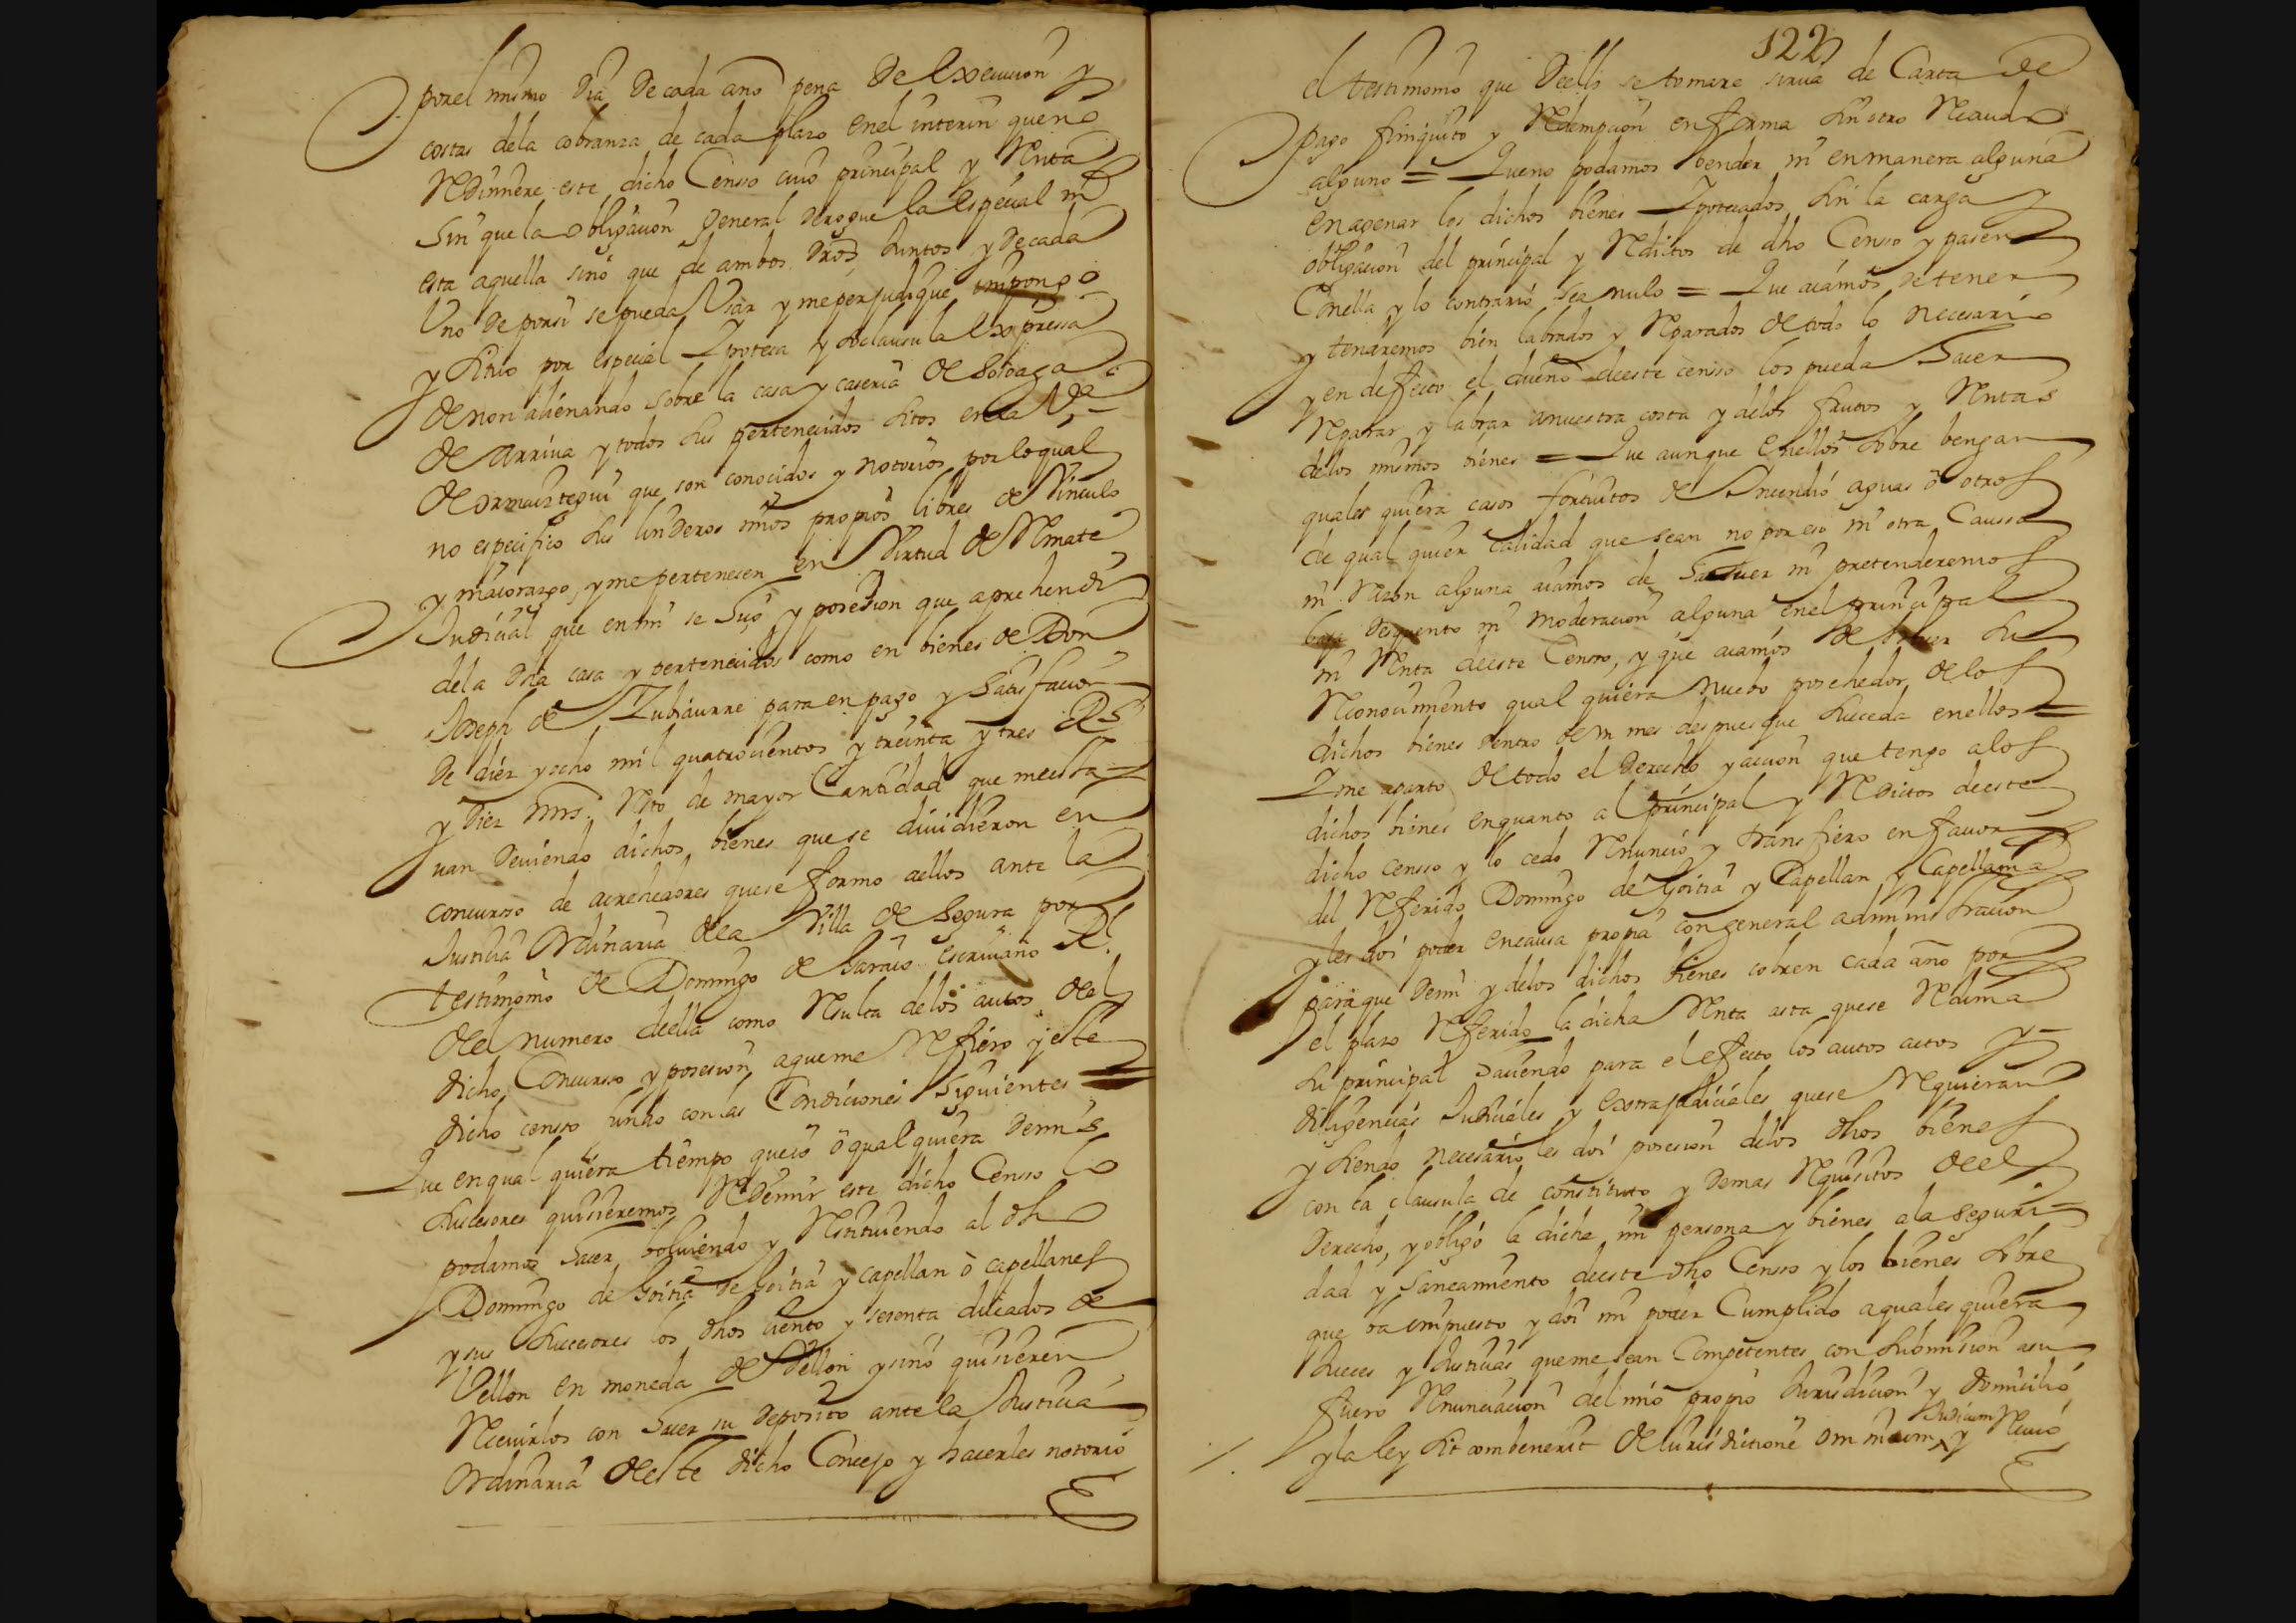 por el mismo dia de cada año pena de execucion y
costas dela cobranza de cada plazo enel interin que no
Redimiere este dicho Censso cuio principal y Renta
sin que la obligacion general derogue la especial ni
esta aquella sino que de ambos dros Juntos y de cada
Uno de por si se pueda Usar y me perjudique impongo
y situo por especial Ipoteca y declausula expressa
de non alienando sobre la casa y caseria de
de arriua y todos sus pertenecidos sitos en la Va
de ormaiztegui que son conocidos y notorios por lo qual
no especifico sus linderos mios propios libres de Vinculo
y maiorazgo, y me pertenesen en Virtud de Remate
Judicial que en mi se hiço y posesion que aprehendi
dela dha casa y pertenecidos como en bienes de Don
Joseph de Zubiaurre para en pago y satisfacion
de diez y ocho mil quatrocientos y treinta y tres Rs
y diez mrs. Rto de mayor Cantidad que me esta
uan deviendo dichos bienes que se diuidieron en
concurso de acrehedores que se formo aellos ante la
Justicia Ordinaria dela Villa de Segura por
testimonio de Domingo de escriuano Rl
del numero deella como Resulta delos autos del
dicho Concurso y posesion aque me Refiero y este
dicho censso fundo con las Condiciones siguientes =
Que en qual quiera tiempo que io ó qual quiera demis
subcesores quisieremos Redemir este dicho Censo lo
podamos hacer bolviendo y Restituiendo al dho
Domingo de Goitia de Goitia y capellan ò capellanes
y sus subcesores los dhos ciento y sesenta ducados de
Vellon en moneda de Vellon y sino quisieren
Recivirlos con hacer su deposito ante la Justicia
Ordinaria deeste dicho Concejo y hacerles notorio
122
el testimonio que deello se tomare sirua de Carta de
pago finiquito y Redempcion en forma sin otro Recaudo
alguno = Que no podamos bender ni en manera alguna
enagenar los dichos bienes Ipotecados sin la carga y
obligacion del principal y Reditos de dho Censo y pasen
Conella y lo contrario sea nulo = Que aiamos de tener
y tendremos bien labrados y Reparados de todo lo necesario
y en defecto el dueño deeste censso los pueda hacer
Reparar y labrar anuestra costa y delos frutos y Rentas
delos mismos bienes = Que aunque Enellos sobre bengan
quales quiera casos fortuitos de Yncendio aguas ó otros
de qual quier calidad que sean no por eso ni otra Caussa
ni Razon alguna aiamos de hacer ni pretenderemos
baja desquento ni moderacion alguna enel principal
ni Renta deeste Censso, y que aiamos de hacer su
Reconocimiento qual quiera nuebo posehedor delos
dichos bienes dentro de Vn mes despues que subceda enellos =
Y me aparto de todo el derecho y accion que tengo alos
dichos bienes en quanto al principal y Reditos deeste
dicho censso y lo cedo Renuncio y transfiero en fauor
del Referido Domingo de Goitia y Capellan y Capellania
y les doi poder en causa propia con general administracion
para que demi y delos dichos bienes cobren cada año por
el plazo Referido la dicha Renta asta que se Redima
su principal haciendo para el efecto los autos actos y
diligencias Judiciales y extrajudiciales que se Requieran
y siendo necesario les doi posesion delos dhos bienes
con la clausula de constituto y demas Requisitos deel
derecho, y obligo la dicha mi persona y bienes ala seguri
dad y saneamiento deeste dho Censso y los bienes sobre
que ba impuesto y doi mi poder Cumplido aquales quiera
Jueces y Justicias que me sean Competentes con submision asu
fuero Renunciacion del mio propio Jurisdicion y domicilio
y la ley sit combenerit de iurisdictione omnium Judicum y Recivo